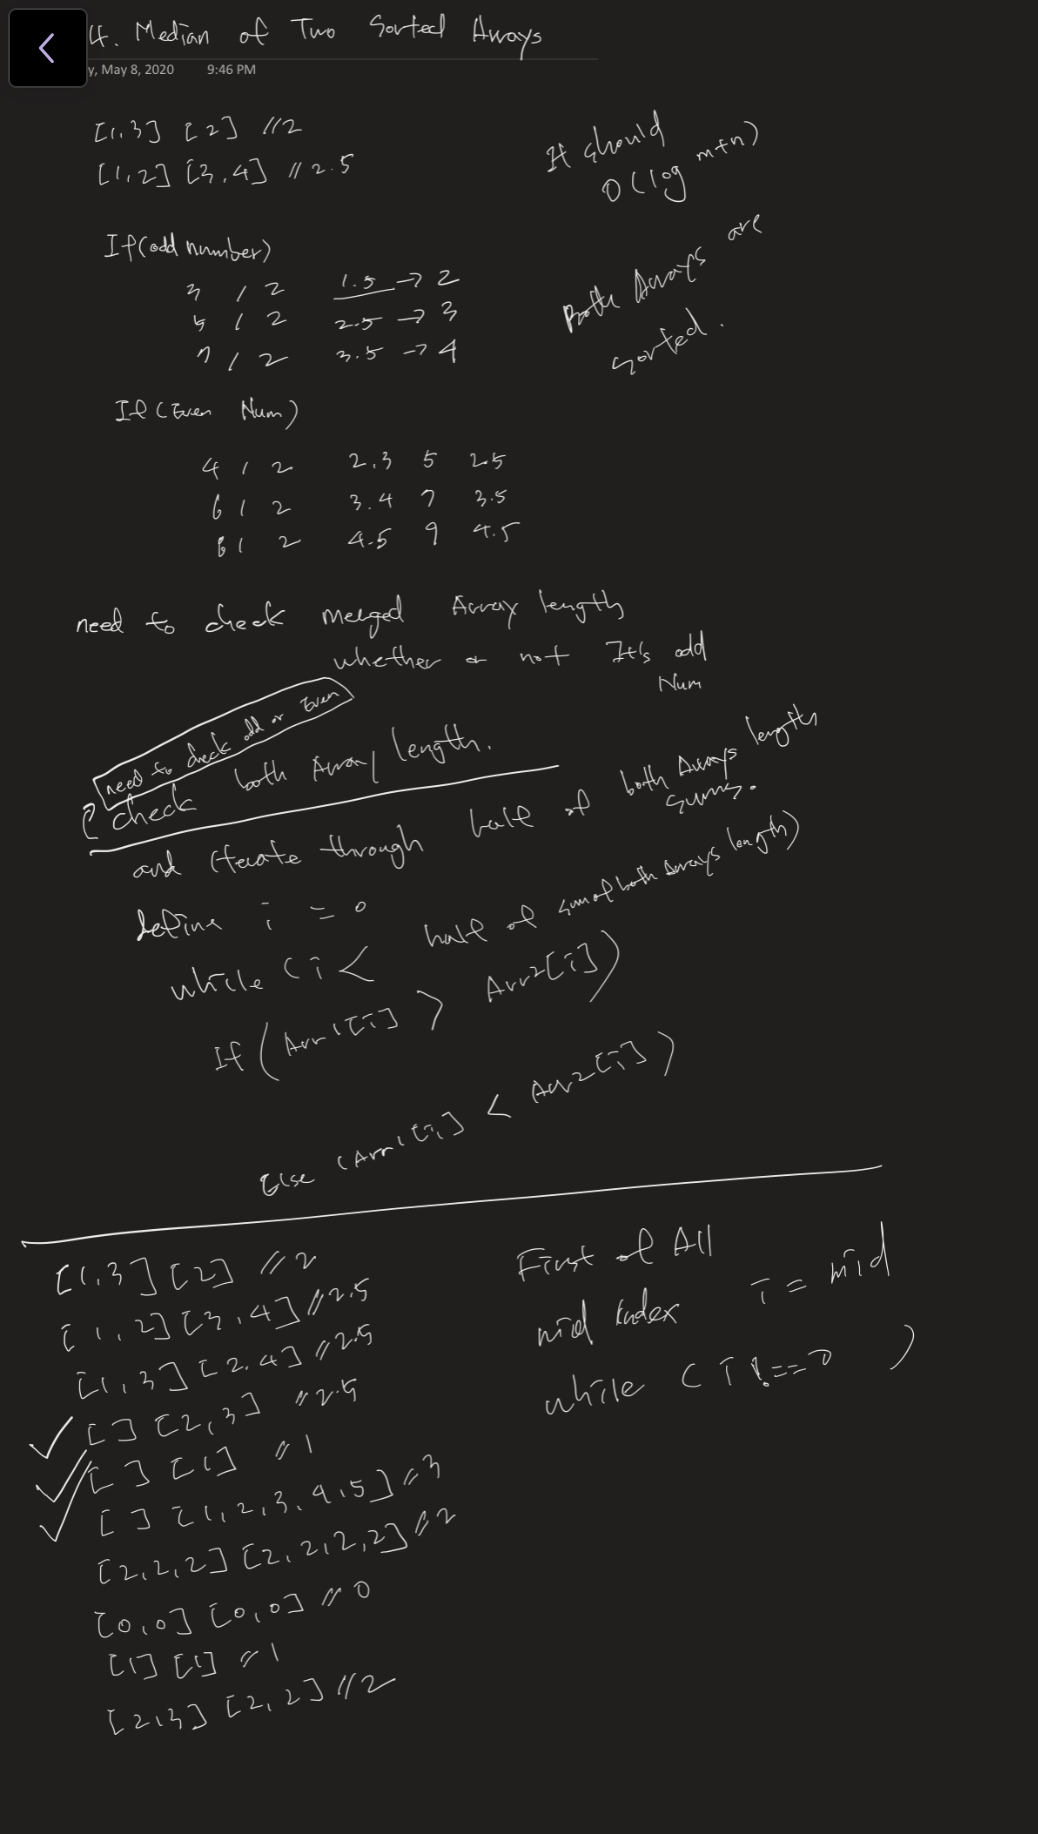 4. Median of Two Sorted Arrays
y, May 8, 2020 9:46 PM
[1,3] [2] //2
[1,2] [3,4] //2.5
It should
O(log m+n)
Both Arrays are
sorted.
If(odd number)
3 / 2 1.5 -> 2
5 / 2 2.5 -> 3
7 / 2 3.5 -> 4
If (Even Num)
4 / 2 2,3 5 2.5
6 / 2 3.4 7 3.5
8 / 2 4.5 9 4.5
need to check merged Array length
whether or not It's odd
Num
need to check odd or Even
check both Array length.
and iterate through half of both Arrays length
sums.
define i = 0
while (i < half of sum of both Arrays length)
If (Arr1[i] > Arr2[i])
Else (Arr1[i] < Arr2[i])
[1,3] [2] //2
[1,2] [3,4] //2.5
[1,3] [2,4] //2.5
[] [2,3] //2.5
[] [1] //1
[] [1,2,3,4,5] //3
[2,2,2] [2,2,2,2] //2
[0,0] [0,0] //0
[1] [1] //1
[2,3] [2,2] //2
First of All
mid index i = mid
while (i !== 0 )